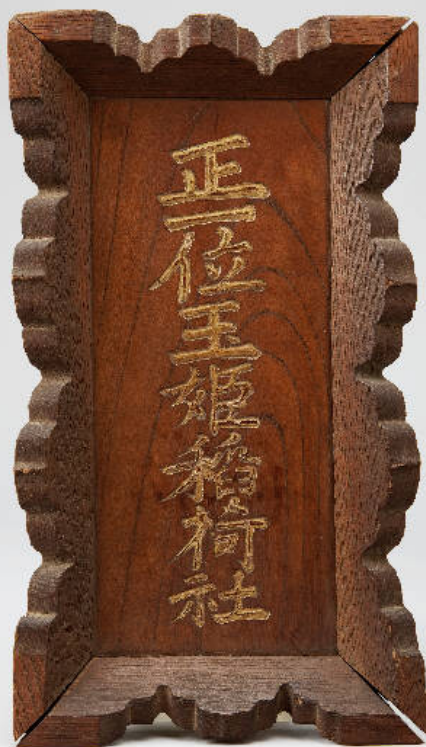 正一位王姫稲荷社